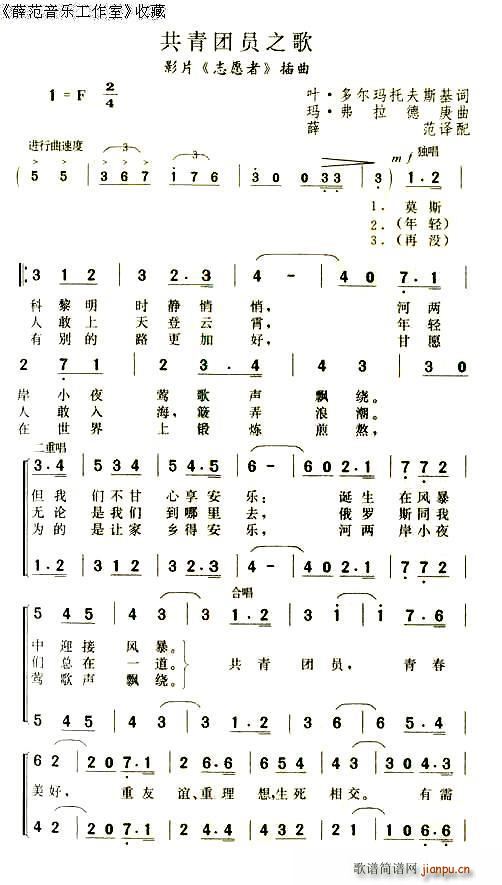 《薛范音乐工作室》收藏
共青团员之歌
影片《志愿者》插曲
1=F 2/4
叶·多尔玛托夫斯基词
玛·弗拉德庚曲
薛范译配
进行曲速度
mf 独唱
( 5 5 | 3 6 7 1 7 6 | 3 0 0 3 3 | 3 ) 1·2
1. 莫斯
2.(年轻)
3.(再没)
3 1 2 | 3 2·3 | 4 - | 4 0 7·1 |
科黎明时静悄悄,河两
人敢上天登云霄,年轻
有别的路更加好,甘愿
2 7 1 | 2 3·4 | 4 3 | 3 0
岸小夜莺歌声飘绕。
人敢入海,簸弄浪潮。
在世界上锻炼煎熬,
二重唱
3·4 | 5 3 4 | 5 4·5 | 6 - | 6 0 2·1 | 7 7 2
但我们不甘心享安乐;诞生在风暴
无论是我们到哪里去,俄罗斯同我
为的是让家乡得安乐,河两岸小夜
1·2 | 3 1 2 | 3 2·3 | 4 - | 4 0 2·1 | 7 7 2
合唱
5 4 5 | 4 3 | 3 1·2 | 3 i | i 7·6
中迎接风暴。
们总在一道。
莺歌声飘绕。
共青团员,青春
5 4 5 | 4 3 | 3 1·2 | 3 i | 6 5·4
6 2 | 2 0 7·1 | 2 6·6 | 5 4 2 | 3 0 4·3
美好,重友谊、重理想,生死相交。有需
4 2 | 2 0 7·1 | 2 2·2 | 2 4 2 | 1 0 6·6
歌谱简谱网
jianpu.cn